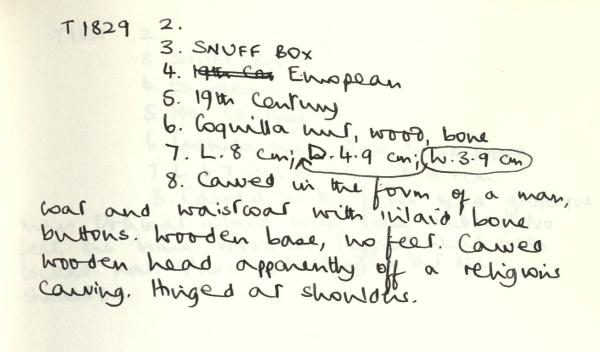 T1829 2.
3. SNUFF BOX
4. 19th Cen European
5. 19th Century
6. Coquilla nut, wood, bone
7. L. 8 cm; D. 4.9 cm; W. 3.9 cm
8. Carved in the form of a man,
coat and waistcoat with inlaid bone
buttons. Wooden base, no feet. Carved
wooden head apparently off a religious
carving. Hinged at shoulders.